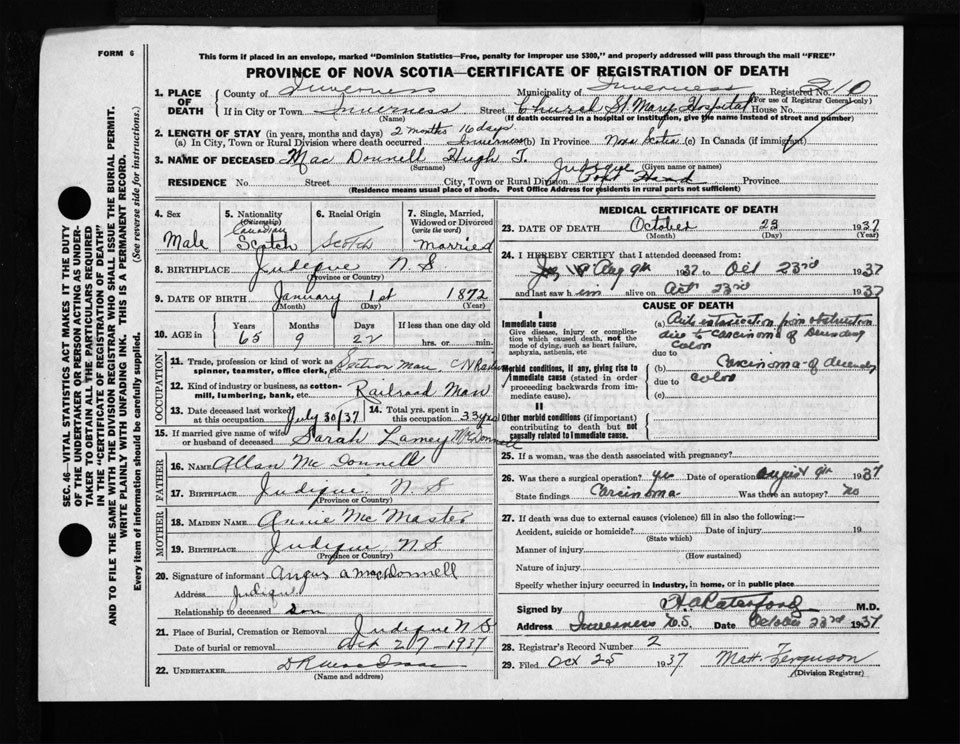 FORM 6
This form if placed in an envelope, marked "Dominion Statistics—Free, penalty for improper use $300," and properly addressed will pass through the mail "FREE"
PROVINCE OF NOVA SCOTIA—CERTIFICATE OF REGISTRATION OF DEATH
1. PLACE OF DEATH County of Inverness Municipality of Inverness Registered No. 10
(For use of Registrar General only)
If in City or Town Inverness Street Church St. Mary Hospital House No.
(Name) (If death occurred in a hospital or institution, give the name instead of street and number)
2. LENGTH OF STAY (in years, months and days) 2 months 16 days
(a) In City, Town or Rural Division where death occurred Inverness (b) In Province Nova Scotia (c) In Canada (if immigrant)
3. NAME OF DECEASED Mac Donnell Hugh T.
(Surname) (Given name or names)
RESIDENCE No. Street City, Town or Rural Division Judique Port Hood Province
(Residence means usual place of abode. Post Office Address for residents in rural parts not sufficient)
4. Sex Male
5. Nationality (Citizenship) Canadian Scotch
6. Racial Origin Scotch
7. Single, Married, Widowed or Divorced (write the word) Married
8. BIRTHPLACE Judique N.S.
(Province or Country)
9. DATE OF BIRTH January 1st 1872
(Month) (Day) (Year)
10. AGE in Years Months Days If less than one day old
65 9 22 hrs. or min.
OCCUPATION
11. Trade, profession or kind of work as spinner, teamster, office clerk, etc. Section man C N Railway
12. Kind of industry or business, as cotton-mill, lumbering, bank, etc. Railroad Man
13. Date deceased last worked at this occupation July 30/37 14. Total yrs. spent in this occupation 33 yrs
15. If married give name of wife or husband of deceased Sarah Lamey McDonnell
FATHER
16. NAME Allan McDonnell
17. BIRTHPLACE Judique N.S
(Province or Country)
MOTHER
18. MAIDEN NAME Annie McMaster
19. BIRTHPLACE Judique N.S
(Province or Country)
20. Signature of informant Angus A MacDonnell
Address Judique
Relationship to deceased Son
21. Place of Burial, Cremation or Removal Judique N S
Date of burial or removal Oct 27—1937
22. UNDERTAKER D R Mac Isaac
(Name and Address)
MEDICAL CERTIFICATE OF DEATH
23. DATE OF DEATH October 23 1937
(Month) (Day) (Year)
24. I HEREBY CERTIFY that I attended deceased from:
Aug 9th 1937 to Oct 23rd 1937
and last saw him alive on Oct 23rd 1937
CAUSE OF DEATH
I
Immediate cause
Give disease, injury or complication which caused death, not the mode of dying, such as heart failure, asphyxia, asthenia, etc
(a) intoxication from obstruction
due to carcinoma of
colon
due to
Morbid conditions, if any, giving rise to immediate cause (stated in order proceeding backwards from immediate cause).
(b) Carcinoma of
due to colon
(c)
II
Other morbid conditions (if important) contributing to death but not causally related to immediate cause.
25. If a woman, was the death associated with pregnancy?
26. Was there a surgical operation? yes Date of operation August 9th 1937
State findings Carcinoma Was there an autopsy? no
27. If death was due to external causes (violence) fill in also the following:—
Accident, suicide or homicide? Date of injury 19
(State which)
Manner of injury
(How sustained)
Nature of injury
Specify whether injury occurred in industry, in home, or in public place
Signed by M.D.
Address Inverness N.S. Date October 23rd 1937
28. Registrar's Record Number 2
29. Filed Oct 25 1937 Matt. Ferguson
(Division Registrar)
SEC. 46—VITAL STATISTICS ACT MAKES IT THE DUTY
OF THE UNDERTAKER OR PERSON ACTING AS UNDER-
TAKER TO OBTAIN ALL THE PARTICULARS REQUIRED
IN THE "CERTIFICATE OF REGISTRATION OF DEATH"
AND TO FILE THE SAME WITH THE DIVISION REGISTRAR WHO SHALL ISSUE THE BURIAL PERMIT.
WRITE PLAINLY WITH UNFADING INK. THIS IS A PERMANENT RECORD.
Every item of information should be carefully supplied. (See reverse side for instructions.)